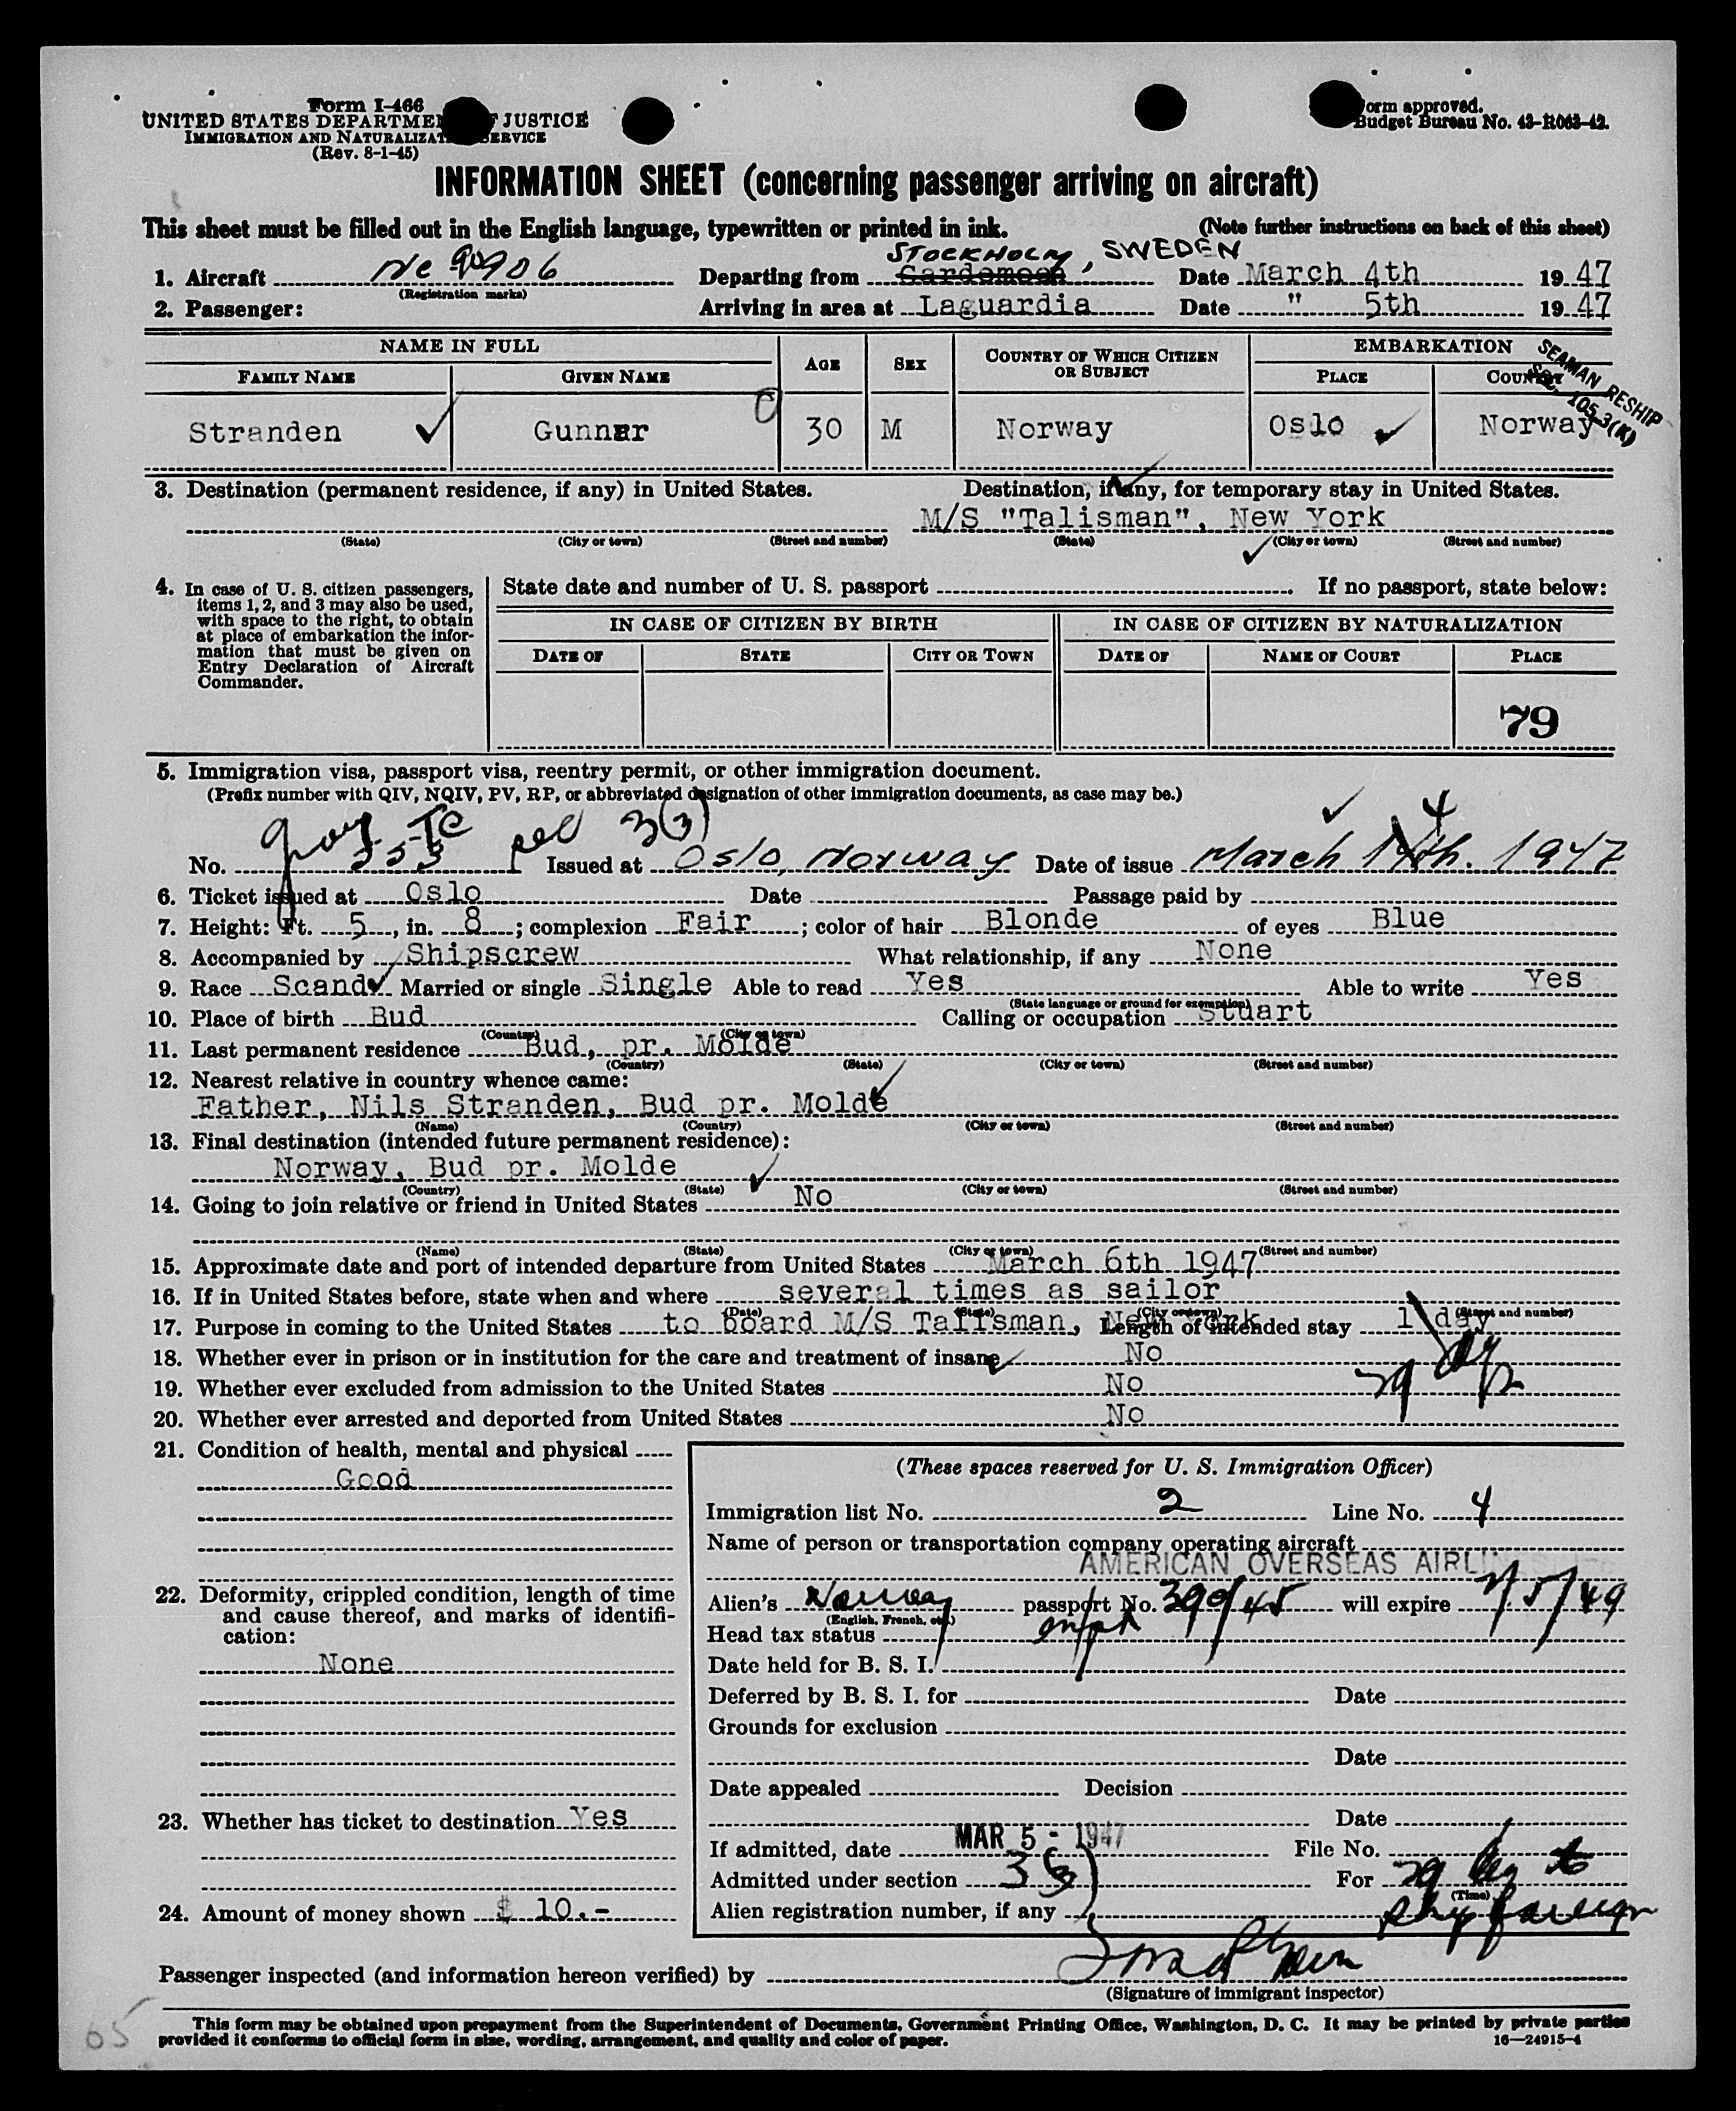 Form I-466
UNITED STATES DEPARTMENT OF JUSTICE
IMMIGRATION AND NATURALIZATION SERVICE
(Rev. 8-1-45)
Form approved.
Budget Bureau No. 43-R063-42.
INFORMATION SHEET (concerning passenger arriving on aircraft)
This sheet must be filled out in the English language, typewritten or printed in ink. (Note further instructions on back of this sheet)
STOCKHOLM, SWEDEN
1. Aircraft Nc 90906 Departing from Gardemoen Date March 4th 1947
(Registration marks)
2. Passenger: Arriving in area at Laguardia Date " 5th 1947
NAME IN FULL AGE SEX COUNTRY OF WHICH CITIZEN OR SUBJECT EMBARKATION
FAMILY NAME GIVEN NAME PLACE COUNTRY
SEAMAN RESHIP
SEC. 105.3(K)
Stranden Gunnar 30 M Norway Oslo Norway
3. Destination (permanent residence, if any) in United States. Destination, if any, for temporary stay in United States.
M/S "Talisman", New York
(State) (City or town) (Street and number) (State) (City or town) (Street and number)
4. In case of U. S. citizen passengers, items 1, 2, and 3 may also be used, with space to the right, to obtain at place of embarkation the information that must be given on Entry Declaration of Aircraft Commander.
State date and number of U. S. passport . If no passport, state below:
IN CASE OF CITIZEN BY BIRTH IN CASE OF CITIZEN BY NATURALIZATION
DATE OF STATE CITY OR TOWN DATE OF NAME OF COURT PLACE
79
5. Immigration visa, passport visa, reentry permit, or other immigration document.
(Prefix number with QIV, NQIV, PV, RP, or abbreviated designation of other immigration documents, as case may be.)
3(3) 4
No. 555 Issued at Oslo, Norway Date of issue March 14th. 1947
6. Ticket issued at Oslo Date Passage paid by
7. Height: Ft. 5, in. 8; complexion Fair; color of hair Blonde of eyes Blue
8. Accompanied by Shipscrew What relationship, if any None
9. Race Scand. Married or single Single Able to read Yes Able to write Yes
(State language or ground for exemption)
10. Place of birth Bud Calling or occupation Stuart
(Country) (City or town)
11. Last permanent residence Bud, pr. Molde
(Country) (State) (City or town) (Street and number)
12. Nearest relative in country whence came:
Father, Nils Stranden, Bud pr. Molde
(Name) (Country) (City or town) (Street and number)
13. Final destination (intended future permanent residence):
Norway, Bud pr. Molde
(Country) (State) (City or town) (Street and number)
14. Going to join relative or friend in United States No
(Name) (State) (City or town) (Street and number)
15. Approximate date and port of intended departure from United States March 6th 1947
16. If in United States before, state when and where several times as sailor
(Date) (State) (City or town) (Street and number)
17. Purpose in coming to the United States to board M/S Talisman, New York Length of intended stay 1 day
18. Whether ever in prison or in institution for the care and treatment of insane No
29 dys
19. Whether ever excluded from admission to the United States No
20. Whether ever arrested and deported from United States No
21. Condition of health, mental and physical
Good
22. Deformity, crippled condition, length of time and cause thereof, and marks of identification:
None
23. Whether has ticket to destination Yes
24. Amount of money shown $ 10.-
(These spaces reserved for U. S. Immigration Officer)
Immigration list No. 2 Line No. 4
Name of person or transportation company operating aircraft
AMERICAN OVERSEAS AIRLINES
Alien's Norway passport No. 390/45 will expire 2/5/49
(English, French, etc.)
Head tax status
Date held for B. S. I.
Deferred by B. S. I. for Date
Grounds for exclusion
Date
Date appealed Decision
Date
If admitted, date MAR 5 - 1947 File No.
Admitted under section 3(3) For 29 dys to
(Time)
Alien registration number, if any shp foreign
Passenger inspected (and information hereon verified) by
(Signature of immigrant inspector)
65
This form may be obtained upon prepayment from the Superintendent of Documents, Government Printing Office, Washington, D. C. It may be printed by private parties
provided it conforms to official form in size, wording, arrangement, and quality and color of paper.
16—24915-4